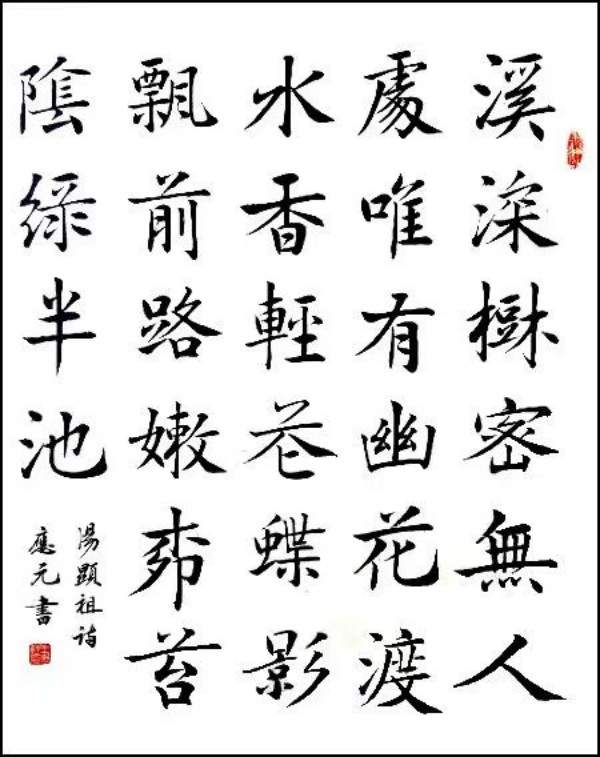 溪深樹密無人
處唯有幽花渡
水香輕蝶影
飄前路嫩苔
陰綠半池
湯顯祖詩
應元書